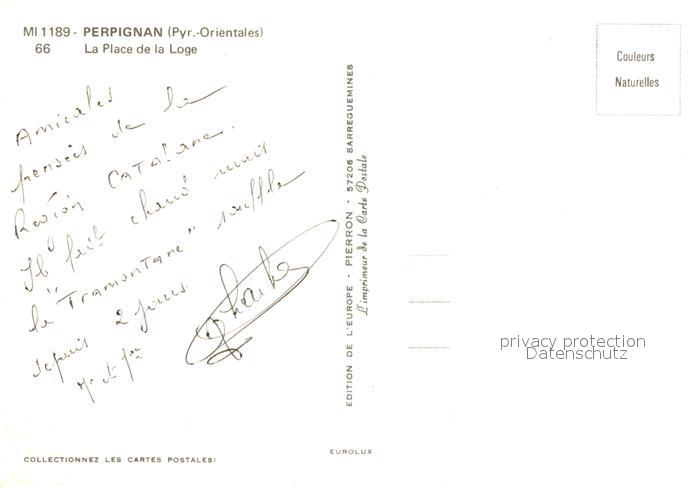 MI 1189 - PERPIGNAN (Pyr.-Orientales)
66 La Place de la Loge
Amicales
pensées de la
Région CATALane.
Il fait chaud mais
la "TRamonTane" souffle
depuis 2 jours
EDITION DE L'EUROPE - PIERRON - 57206 SARREGUEMINES
L'imprimeur de la Carte Postale
Couleurs
Naturelles
privacy protection
Datenschutz
EUROLUX
COLLECTIONNEZ LES CARTES POSTALES: